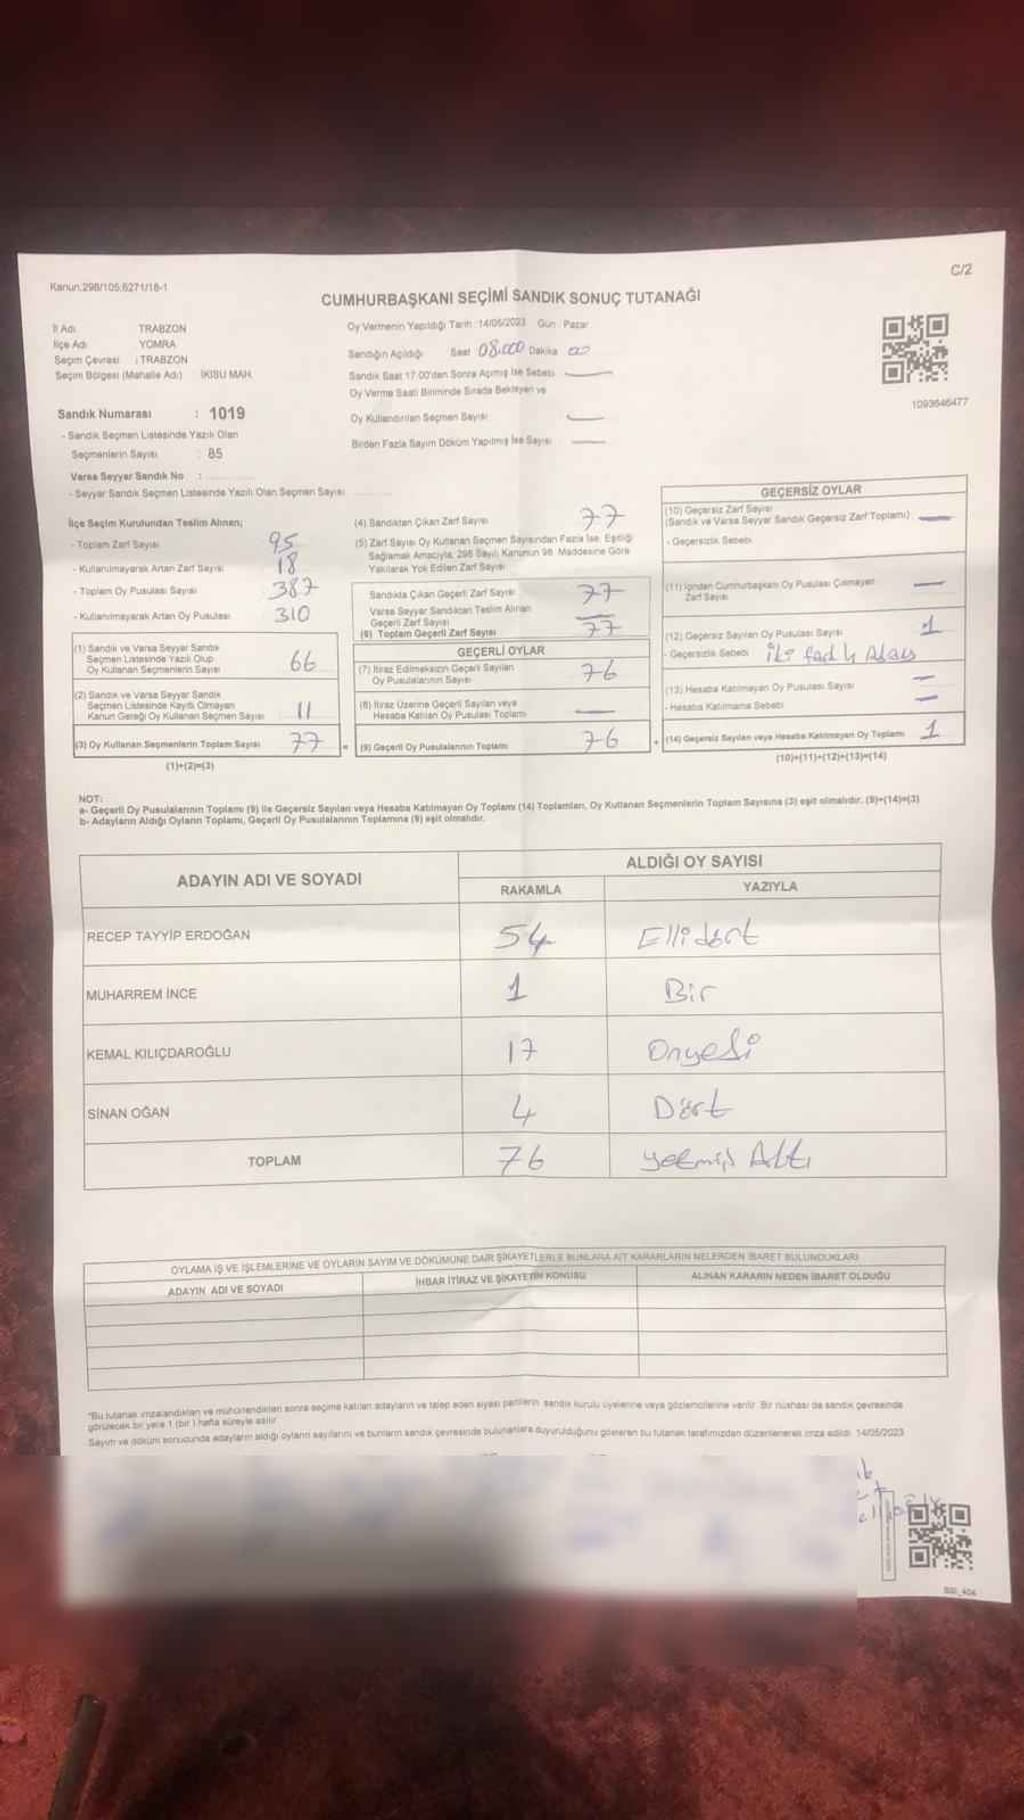 Kanun:298/105,6271/18-1
C/2
CUMHURBAŞKANI SEÇİMİ SANDIK SONUÇ TUTANAĞI
İl Adı TRABZON
İlçe Adı YOMRA
Seçim Çevresi : TRABZON
Seçim Bölgesi (Mahalle Adı) İKİSU MAH.
Sandık Numarası : 1019
- Sandık Seçmen Listesinde Yazılı Olan
Seçmenlerin Sayısı : 85
Varsa Seyyar Sandık No :
- Seyyar Sandık Seçmen Listesinde Yazılı Olan Seçmen Sayısı
Oy Vermenin Yapıldığı Tarih :14/05/2023 Gün : Pazar
Sandığın Açıldığı Saat 08:000 Dakika 00
Sandık Saat 17.00'den Sonra Açılmış İse Sebebi
Oy Verme Saati Bitiminde Sırada Bekleyen ve
Oy Kullandırılan Seçmen Sayısı
Birden Fazla Sayım Döküm Yapılmış İse Sayısı
1093646477
İlçe Seçim Kurulundan Teslim Alınan;
- Toplam Zarf Sayısı 95
- Kullanılmayarak Artan Zarf Sayısı 18
- Toplam Oy Pusulası Sayısı 387
- Kullanılmayarak Artan Oy Pusulası 310
(1) Sandık ve Varsa Seyyar Sandık
Seçmen Listesinde Yazılı Olup
Oy Kullanan Seçmenlerin Sayısı 66
(2) Sandık ve Varsa Seyyar Sandık
Seçmen Listesinde Kayıtlı Olmayan
Kanun Gereği Oy Kullanan Seçmen Sayısı 11
(3) Oy Kullanan Seçmenlerin Toplam Sayısı 77
(1)+(2)=(3)
=
(4) Sandıktan Çıkan Zarf Sayısı 77
(5) Zarf Sayısı Oy Kullanan Seçmen Sayısından Fazla İse, Eşitliği
Sağlamak Amacıyla, 298 Sayılı Kanunun 98. Maddesine Göre
Yakılarak Yok Edilen Zarf Sayısı
Sandıkta Çıkan Geçerli Zarf Sayısı 77
Varsa Seyyar Sandıktan Teslim Alınan
Geçerli Zarf Sayısı
(6) Toplam Geçerli Zarf Sayısı 77
GEÇERLİ OYLAR
(7) İtiraz Edilmeksizin Geçerli Sayılan
Oy Pusulalarının Sayısı 76
(8) İtiraz Üzerine Geçerli Sayılan veya
Hesaba Katılan Oy Pusulası Toplamı
(9) Geçerli Oy Pusulalarının Toplamı 76
+
GEÇERSİZ OYLAR
(10) Geçersiz Zarf Sayısı
(Sandık ve Varsa Seyyar Sandık Geçersiz Zarf Toplamı)
- Geçersizlik Sebebi
(11) İçinden Cumhurbaşkanı Oy Pusulası Çıkmayan
Zarf Sayısı
(12) Geçersiz Sayılan Oy Pusulası Sayısı 1
- Geçersizlik Sebebi İki farklı Aday
(13) Hesaba Katılmayan Oy Pusulası Sayısı
- Hesaba Katılmama Sebebi
(14) Geçersiz Sayılan veya Hesaba Katılmayan Oy Toplamı 1
(10)+(11)+(12)+(13)=(14)
NOT:
a- Geçerli Oy Pusulalarının Toplamı (9) ile Geçersiz Sayılan veya Hesaba Katılmayan Oy Toplamı (14) Toplamları, Oy Kullanan Seçmenlerin Toplam Sayısına (3) eşit olmalıdır. (9)+(14)=(3)
b- Adayların Aldığı Oyların Toplamı, Geçerli Oy Pusulalarının Toplamına (9) eşit olmalıdır.
ADAYIN ADI VE SOYADI ALDIĞI OY SAYISI
RAKAMLA YAZIYLA
RECEP TAYYİP ERDOĞAN 54 Ellidört
MUHARREM İNCE 1 Bir
KEMAL KILIÇDAROĞLU 17 Onyedi
SİNAN OĞAN 4 Dört
TOPLAM 76 yetmiş Altı
OYLAMA İŞ VE İŞLEMLERİNE VE OYLARIN SAYIM VE DÖKÜMÜNE DAİR ŞİKAYETLERLE BUNLARA AİT KARARLARIN NELERDEN İBARET BULUNDUKLARI
ADAYIN ADI VE SOYADI İHBAR İTİRAZ VE ŞİKAYETİN KONUSU ALINAN KARARIN NEDEN İBARET OLDUĞU
*Bu tutanak imzalandıktan ve mühürlendikten sonra seçime katılan adayların ve talep eden siyasi partilerin sandık kurulu üyelerine veya gözlemcilerine verilir. Bir nüshası da sandık çevresinde
görülecek bir yere 1 (bir) hafta süreyle asılır.
Sayım ve döküm sonucunda adayların aldığı oyların sayılarını ve bunların sandık çevresinde bulunanlara duyurulduğunu gösteren bu tutanak tarafımızdan düzenlenerek imza edildi. 14/05/2023